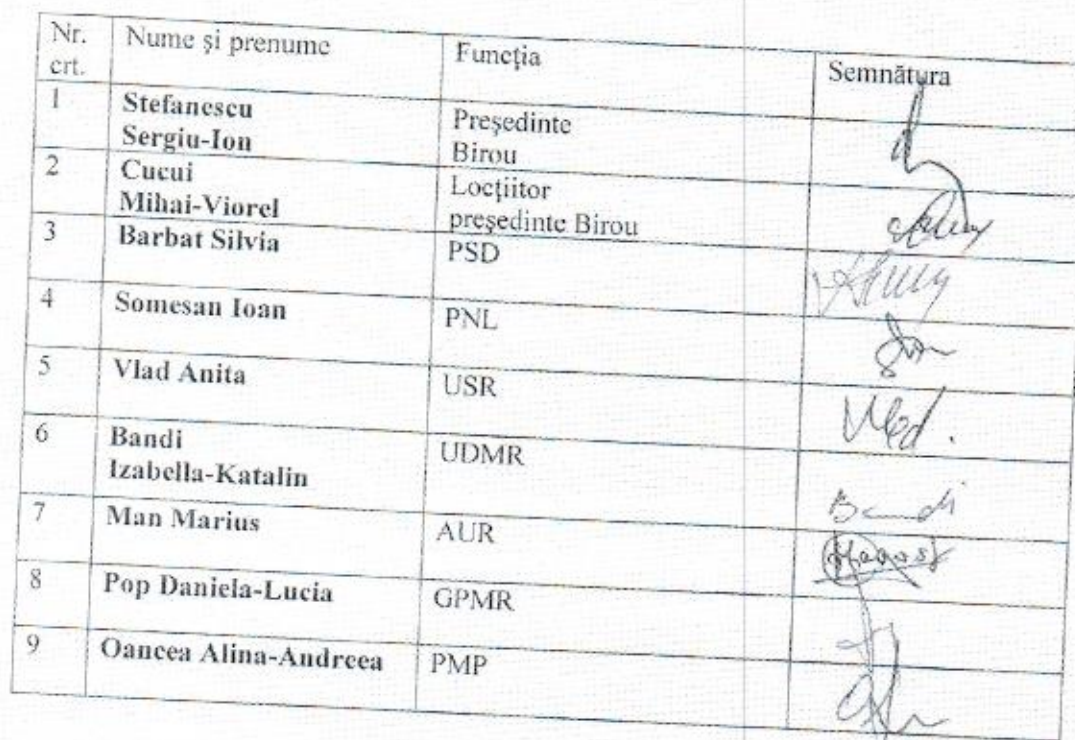 Nr. crt. Nume și prenume Funcția Semnătura
1 Stefanescu Sergiu-Ion Președinte Birou
2 Cucui Mihai-Viorel Locțiitor președinte Birou
3 Barbat Silvia PSD
4 Somesan Ioan PNL
5 Vlad Anita USR Vlad.
6 Bandi Izabella-Katalin UDMR Bandi
7 Man Marius AUR
8 Pop Daniela-Lucia GPMR
9 Oancea Alina-Andreea PMP